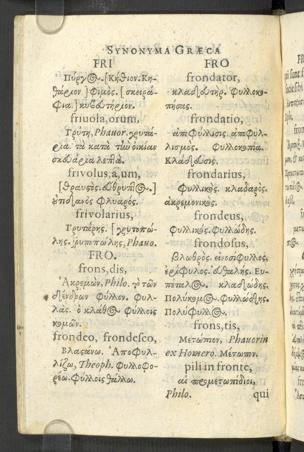 SYNONYMA GRÆCA
FRI
Πύργος. [Κήθιον. Κη-
θάριον] Φιμός. [σκειρά-
φια] κυβευτήριον.
friuola, orum,
Γρύτη, Phauor. γρυτά-
ρια. τὰ κατὰ τὴν οἰκίαν
σκευάρια λεπτά.
friuolus, a, um,
[θραυστὸς. εὔθρυπτος.]
φλυαρός.
friuolarius,
Γρυτάρης. [γρυτοπώ-
λης. ῥωποπώλης, Phauo.
FRO.
frons, dis,
Ἀκρεμών, Philo. τῶν
δένδρων φύλλον. φυλ-
λάς. ὁ κλάδος φύλλοις
κομῶν.
frondeo, frondesco,
Βλαστάνω. Ἀποφυλ-
λίζω, Theoph. φυλλοφο-
ρέω. φύλλοις θάλλω.
FRO
frondator,
κλαστήρ. φυλλοκο-
frondatio,
ἀποφύλλισις. ἀποφυλ-
λισμός. φυλλοκοπία.
frondarius,
φυλλικός. κλαδαρός.
ἀκρεμονικός.
frondeus,
φυλλικός. φυλλώδης.
frondosus,
Βλωθρός. εἰνοσίφυλλος.
ἐρίφυλλος. εὐθαλής. Εὐ-
πέταλος. κλαδώδης.
Πολύκομος. φυλλώδης.
Πολύφυλλος.
frons, tis,
Μέτωπον, Phauorin
ex Homero. Μέτωπον.
pili in fronte,
αἱ προμετωπίδιοι,
Philo. qui